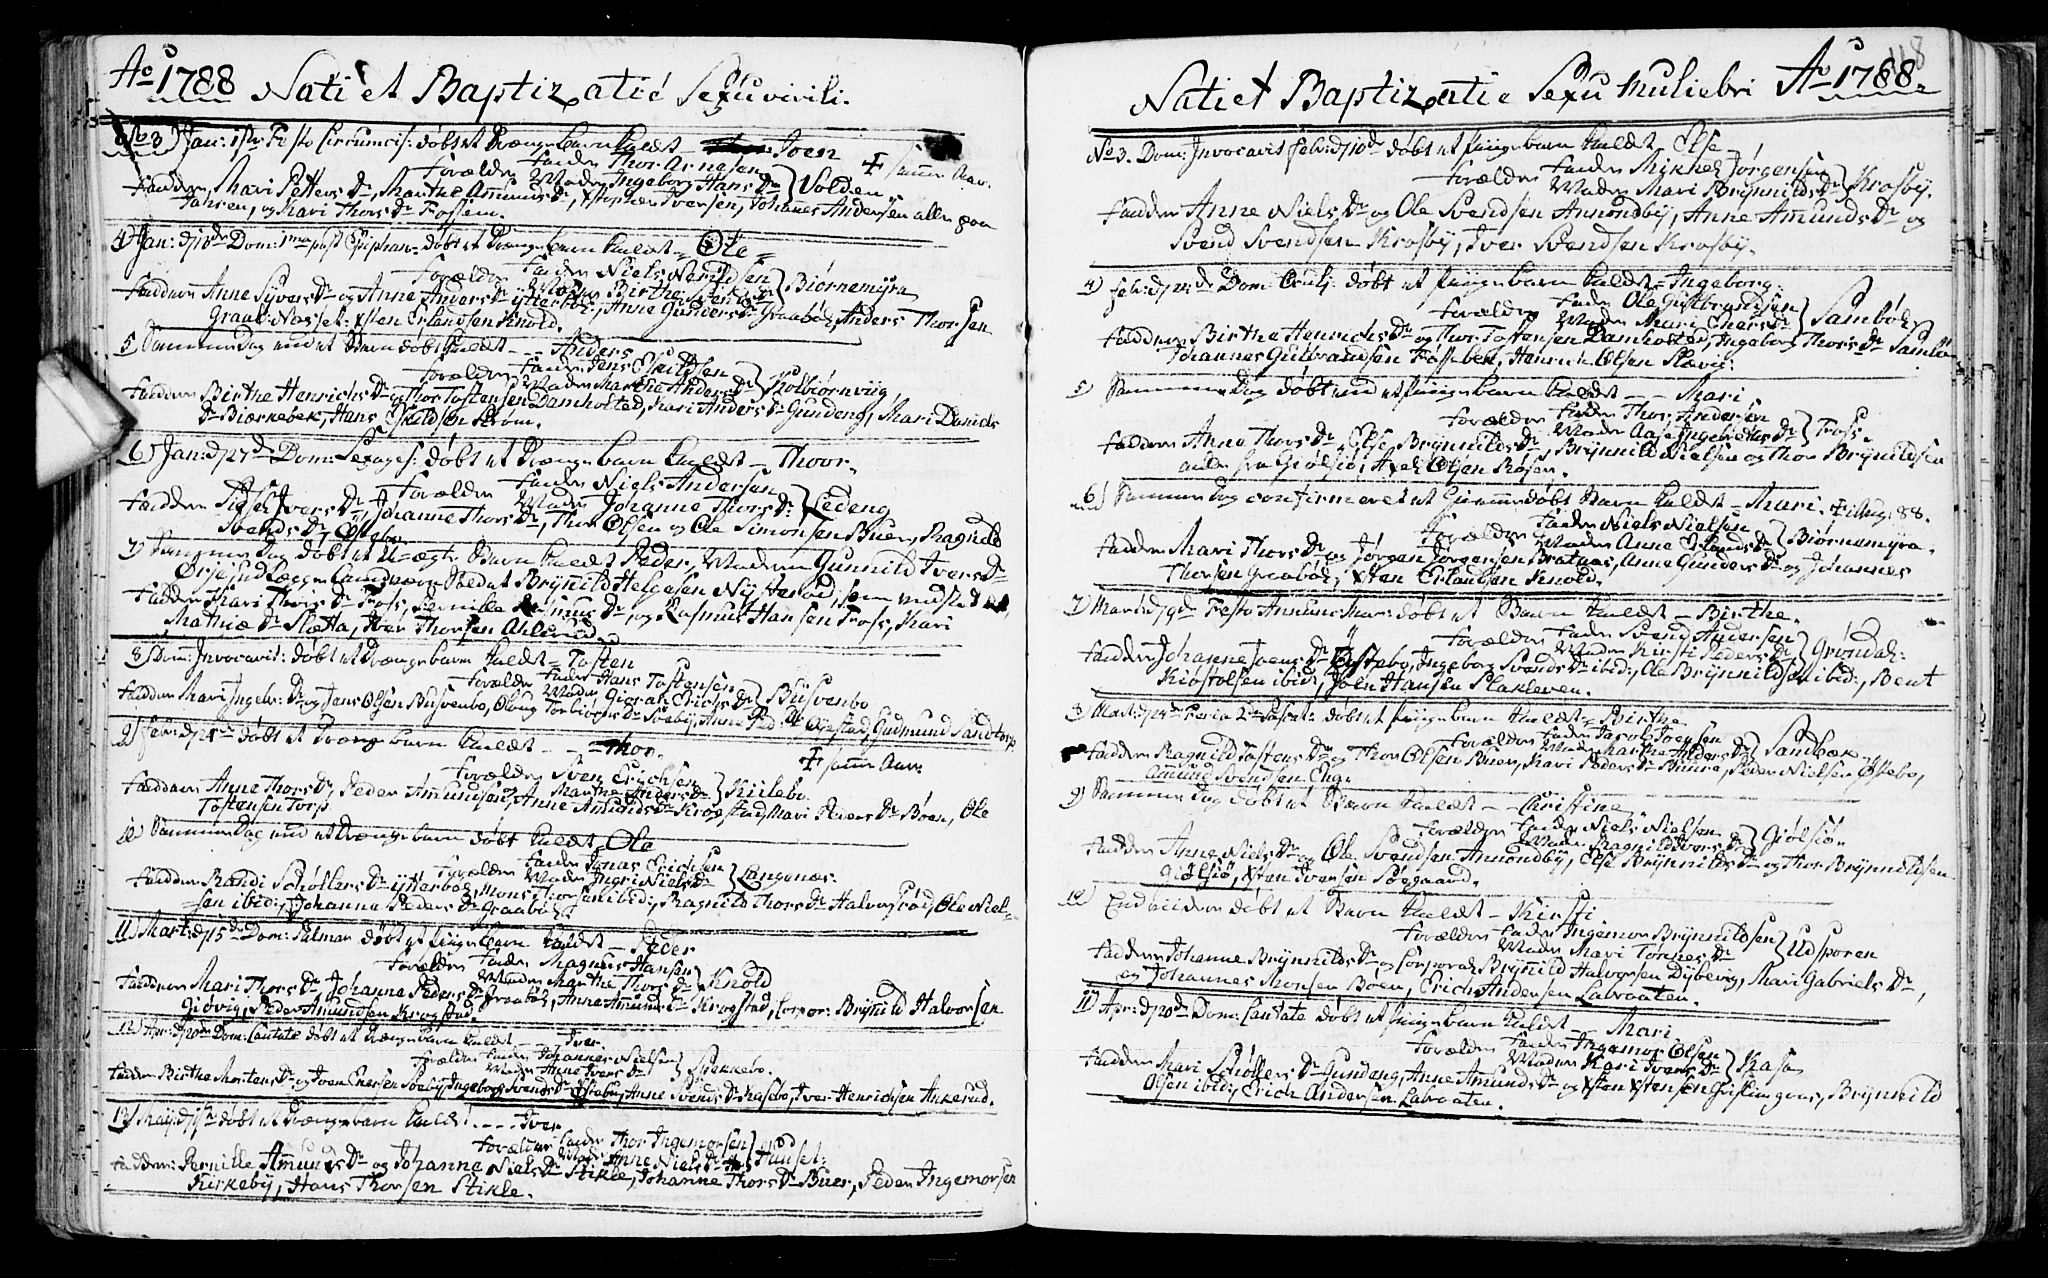 Ao 1788 Nati et Baptizatié Sexu virili.
No 3) Jan: 1ste Festo Circumcis: døbt et Drængebarn kaldt Joen
Forældre Fader Thor Arnesen
Moder Ingeborg Hans Dr } Volden
Faddere Mari Petters Dr, Marthe Amunds Dr, Xstopher Iversen, Johannes Andersen alle paa
og Kari Thors Dr Fossem.
4) Jan: d 13de Dom: 1ma post Epiphan: døbt et Drængebarn kaldt Ole
Forældre Fader Niels
Moder Birthe } Biørnemyra
Faddere Anne Syvers Dr og Anne Anders Dr Ytterbøe, Anne Gunders Dr Graabøl, Anders Thorsen
Graab: Nosset: Xsten Erlandsen Knold.
5) Samme Dag end et Barn døbt kaldt Anders
Forældre Fader Jens Eskildsen
Moder Marthe Anders Dr } Kolbiørnviig
Faddere Birthe Henrichs Dr og Thor Tostensen Damholted, Kari Anders Dr Gundeng, Mari Daniels
Dr Biørkebek, Hans Eskildsen Strøm.
6) Jan: d 27de Dom: Sexages: døbt et Drængebarn kaldt Thoor
Forældre Fader Niels Andersen
Moder Johanne Thors Dr } Ledeng
Faddere Sidsel Ivers Dr, Johanne Thors Dr, Thor Olsen og Ole Simonsen Buer, Ragnild
Svends Dr Østebo
7) Samme Dag døbt et U-ægte Barn kaldt Peder, Moderen Gunnild Ivers Dr
Ørje Brynild Helgesen Nysterød, som
Faddere Kari Thors Dr Foss, Pernille Rasmus Dr, og Rasmus Hansen Foss, Kari
Mathiæ Dr Sletta, Iver Thorsen Ahlerud.
8) Dom: Invocavit: døbt et Drængebarn kaldt Tosten
Forældre Fader Hans Tostensen
Moder Giøran Erichs Dr } Busvenbo
Faddere Mari Ingebr: Dr og Jens Olsen Busvenbo, Olaug Torbiørns Dr Sveby, Anne Ped: Dr Opstad, Gudmund Sandtorp
9) Febr: d 25de døbt et Drængebarn kaldt Thor
Forældre Fader Sven Erichsen
Moder Marthe Anders Dr } Kirkebo
Faddere Anne Thors Dr, Peder Amundsen og Anne Amunds Dr Krogstad, Mari Peders Dr Boen, Ole
Tostensen Torp
10) Samme Dag end et Drængebarn døbt kaldt Ole
Forældre Fader Jonas Erichsen
Moder Ingri Niels Dr } Langenæs
Faddere Randi Schøllers Dr Ytterbøe, Mons Thorsen ibid:, Ragnild Thors Dr Halvorsrød, Ole Niel-
sen ibid:, Johanna Peders Dr Graabøl
11) Mart: d 15de Dom: Palmar: døbt et Drængebarn kaldt Peder
Forældre Fader Magnus Hansen
Moder Marthe Thors Dr } Knold
Faddere Mari Thors Dr, Johanna Peders Dr Graabøl, Anne Amunds Dr Krogstad, Corpor: Brynild Halvorsen
Giøvig, Peder Amundsen Krogstad.
12) Apr: d 20de Dom: Cantate døbt et Drængebarn kaldt Iver
Forældre Fader Johannes Nielsen
Moder Anne Ivers Dr } Spekkebo
Faddere Birthe Mortens Dr og Joen Enersen Svebij, Ingeborg Svends Dr Østebo, Anne Svends Dr Kasebo, Iver Henrichsen Ankerud.
13) Maij: d døbt et Drængebarn kaldt Iver
Forældre Fader Thor Ingemorsen
Moder Anne Niels Dr } Huuset:
Faddere: Pernille Amunds Dr og Johanne Niels Dr Stikle, Johanne Thors Dr Buer, Peder Ingemorsen
Kirkebij, Hans Thorsen Stikle.
118
Nati et Baptizatie Sexu Muliebri Ao 1788.
No 3. Dom: Invocavit Febr: d 10de døbt et Pigebarn kaldt Else
Forældre Fader Mikkel Jørgensen
Moder Mari Brynnilds Dr } Krosby.
Faddere Anne Niels Dr og Ole Svendsen Annondbÿ, Anne Amunds Dr og
Svend Svendsen Krosbÿ, Iver Svendsen Krosbÿ.
4) Febr: d 24de Dom: Oculi: døbt et Pigebarn kaldt Ingeborg:
Forældre Fader Ole Gulbrandsen
Moder Mari Eners Dr } Sambøl
Faddere Birthe Henrichs Dr og Thor Tostensen Damholted, Ingeborg Thors Dr Sambøl
Johannes Gulbrandsen Fossebek, Henrich Olsen Slævig:
5) Samme Dag døbt end et Pigebarn kaldt Mari
Forældre Fader Thor Andersen
Moder Aase Ingebrets Dr } Foss.
Faddere Anne Thors Dr, Else Brynnilds Dr, Brynnild Nielsen og Thor Brynildsen
alle fra Giølsiø, Axel Olsen Røsen.
6) Samme Dag confirmeret et hiemmedøbt Barn kaldt Mari. + Aug: 88.
Forældre Fader Niels Nielsen
Moder Anne Erlands Dr } Biørnemyra.
Faddere Mari Thors Dr og Jørgen Jørgensen Bratnæs, Anne Gunders Dr og Johannes
Thorsen Graabøl, Xsten Erlandsen Knold.
7) Martii d 9de Festo Annunc: Mar: døbt et Barn kaldt Birthe.
Forældre Fader Svend Andersen
Moder Kirsti Peders Dr } Grøndal:
Faddere Johanne Joens Dr Østebo, Ingeborg Svends Dr ibid:, Ole Brynnildsen ibid:, Bent
Kiøstolsen ibid:, Joen Hansen Slakleven.
8) Mart: d 24de Feria 2da Pasch: døbt et Pigebarn kaldt Birthe
Forældre Fader Jacob Joensen
Moder Marthe Anders Dr } Sandbæk
Faddere Ragnild Tostens Dr og Thor Olsen Buer, Kari Peders Dr Buure, Peder Nielsen Østebo,
Amund Svendsen Eng.
9) Samme Dag døbt et Barn kaldt Christine
Forældre Fader Niels Nielsen
Moder Ragnild Ivers Dr } Giølsiø.
Faddere Anne Niels Dr og Ole Svendsen Annondbÿ, Else Brynnilds Dr og Thor Brynnildsen
Giølsiø, Xsten Iversen Søegaard.
10) Endviidere døbt et Barn kaldt Kirsti.
Forældre Fader Ingemor Brynnildsen
Moder Mari Tørres Dr } Udsporen
Faddere Johanne Brynnilds Dr og Corporal Brynild Halvorsen Dybevig, Mari Gabriels Dr,
og Johannes Monsen Boen, Erich Andersen Labraaten.
11) Apr: d 20de Dom: Cantate døbt et Pigebarn kaldt Mari
Forældre Fader Ingemor Olsen
Moder Kari Ivers Dr } Kasa
Faddere Mari Schøllers Dr Gundeng, Anne Amunds Dr og Xsten Xstensen Gislingrus, Brynnild
Olsen ibid:, Erich Andersen Labraaten.